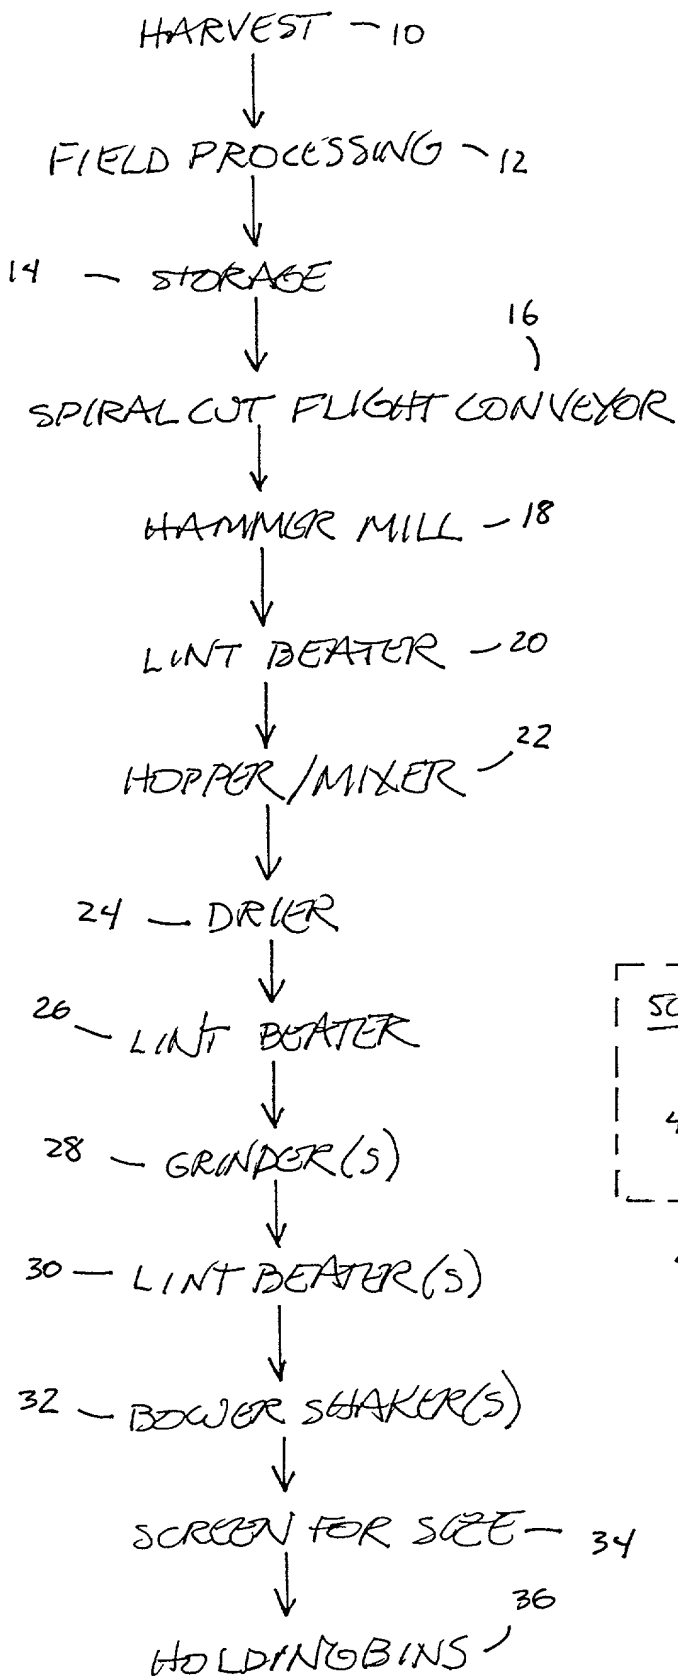 HARVEST - 10
FIELD PROCESSING - 12
14 - STORAGE
16
SPIRAL CUT FLIGHT CONVEYOR
HAMMER MILL - 18
LINT BEATER - 20
HOPPER/MIXER - 22
24 - DRIER
26 - LINT BEATER
50
4
28 - GRINDER(S)
30 - LINT BEATER(S)
32 - BOWER SHAKER(S)
SCREEN FOR SIZE - 34
HOLDING BINS - 36